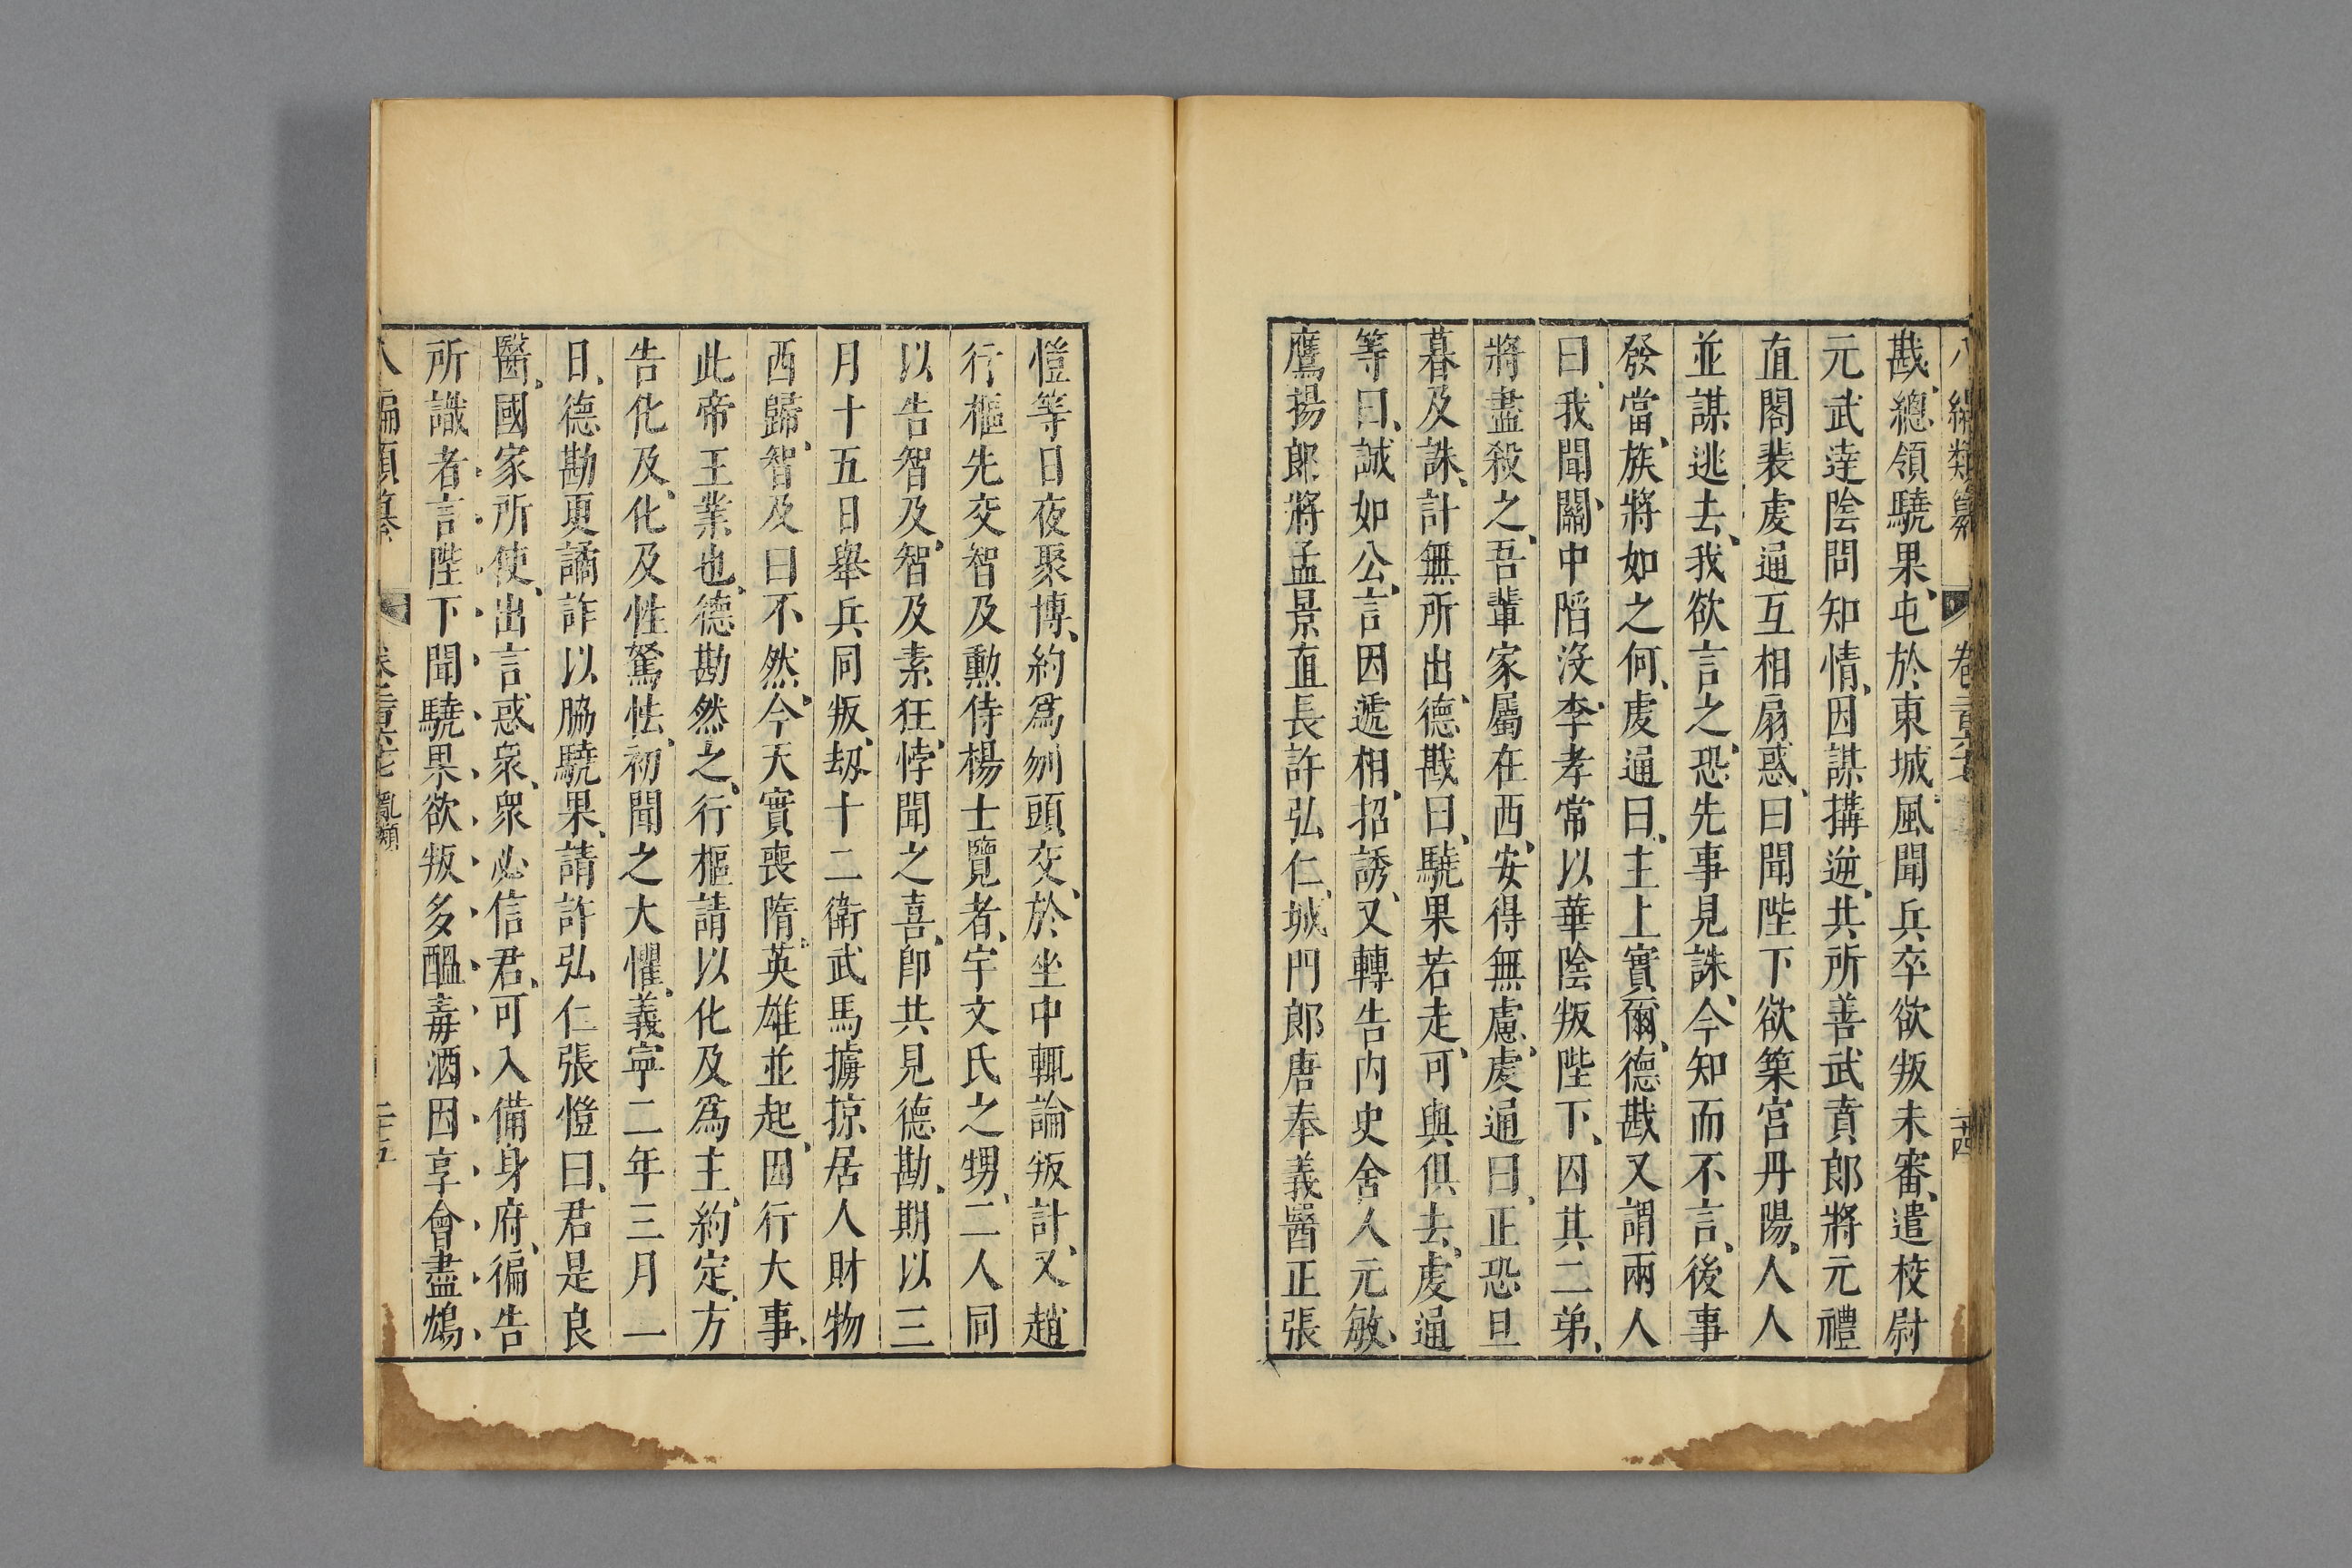 八編類纂 卷二百 二十四
戡、總領驍果、屯於東城、風聞兵卒欲叛未審、遣校尉
元武達陰問知情、因謀搆逆、共所善武賁郎將元禮
直閣裴虔通互相扇惑、曰聞陛下欲築宮丹陽、人人
並謀逃去、我欲言之、恐先事見誅、今知而不言、後事
發當族、將如之何、虔通曰、主上實爾、德戡又謂兩人
曰、我聞關中陷沒、李孝常以華陰叛陛下、囚其二弟、
將盡殺之、吾輩家屬在西、安得無慮、虔通曰、正恐旦
暮及誅、計無所出、德戡曰、驍果若走、可與俱去、虔通
等曰、誠如公言、因遞相招誘、又轉告內史舍人元敏、
鷹揚郎將孟景直長許弘仁、城門郎唐奉義醫正張
愷等日夜聚博、約爲刎頭交、於坐中輒論叛計、又趙
行樞先交智及勲侍楊士覽者、宇文氏之甥、二人同
以告智及、智及素狂悖、聞之喜、卽共見德勘、期以三
月十五日舉兵同叛、刼十二衛武馬擄掠居人財物
西歸、智及曰不然、今天實喪隋、英雄並起、因行大事、
此帝王業也、德勘然之、行樞請以化及爲主、約定、方
告化及、化及性駑怯、初聞之大懼、義寧二年三月一
日、德勘更譎詐以脇驍果、請許弘仁張愷曰、君是良
醫、國家所使、出言惑衆、衆必信君、可入備身府、徧告
所識者言陛下聞驍果欲叛多醞毒酒因享會盡鴆
八編類纂 亂類 二十五